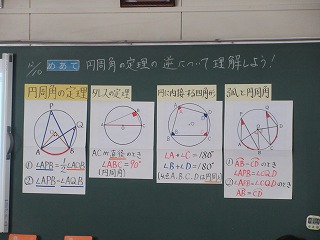 12/10 めあて 円周角の定理の逆について理解しよう!
円周角の定理
① ∠APB=½∠AOB
② ∠APB=∠AQB
タレスの定理
ACが直径のとき
∠ABC=90°
(円周角)
円に内接する四角形
∠A+∠C=180°
∠B+∠D=180°
(4点A.B.C.Dは円周上)
弧と円周角
① AB=CDのとき
∠APB=∠CQD
② ∠APB=∠CQDのとき
AB=CD